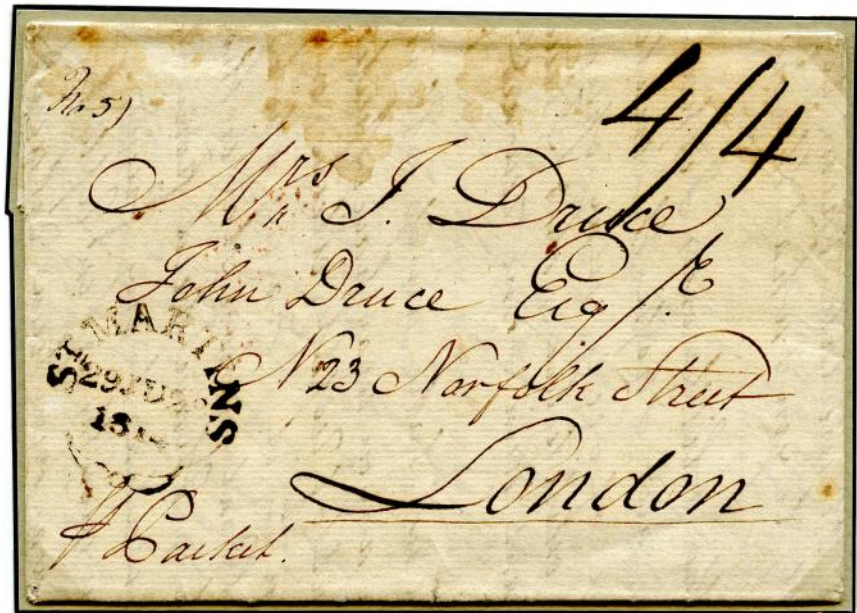 No 5)
4/4
Mrs J. Druce
John Druce Esqre
N 23 Norfolk Street
London
ST MARTINS
29 JU
181
P Packet.